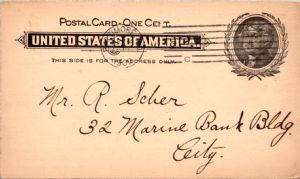 POSTAL CARD - ONE CENT.
UNITED STATES OF AMERICA.
THIS SIDE IS FOR THE ADDRESS ONLY.
Mr. R. Scher
32 Marine Bank Bldg.
City.